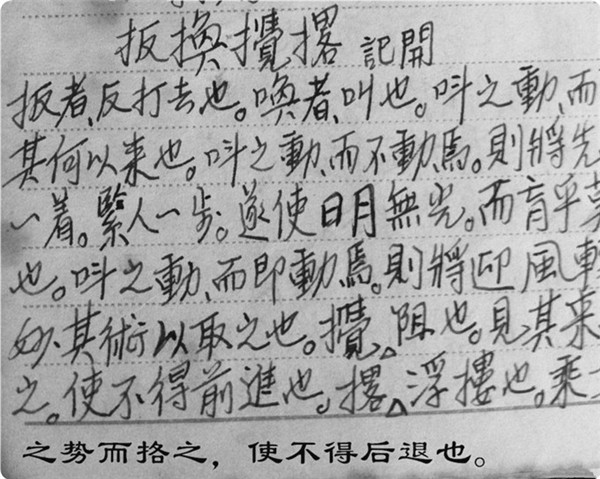 扳換攪撂 記開
扳者、反打去也。喚者、叫也。呌之動、而
其何以来也。呌之動、而不動焉。則將先
一着。緊人一步。遂使日月無光。而育乎
也。呌之動、而即動焉。則將迎風
妙其術以取之也。攪、阻也。見其来
之。使不得前進也。撂、浮摟也。乘
之势而挌之，使不得后退也。